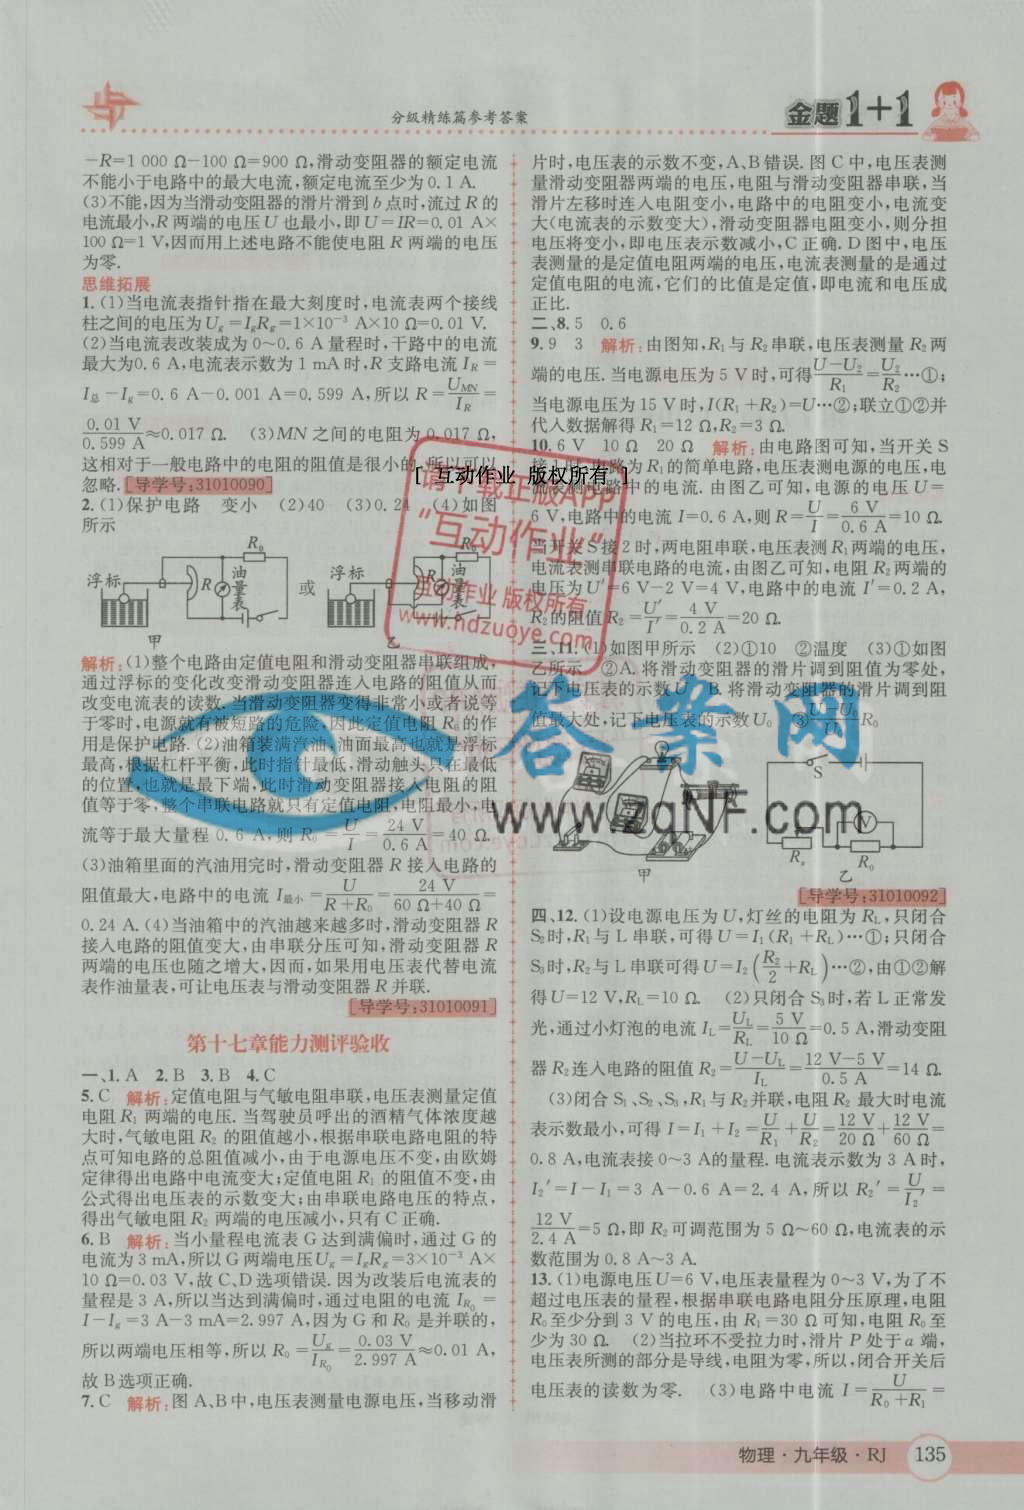 分级精练篇参考答案
金题1+1
-R=1 000 Ω-100 Ω=900 Ω,滑动变阻器的额定电流
不能小于电路中的最大电流,额定电流至少为0.1 A.
(3)不能,因为当滑动变阻器的滑片滑到b点时,流过R的
电流最小,R两端的电压U也最小,即U=IR=0.01 A×
100 Ω=1 V,因而用上述电路不能使电阻R两端的电压
为零.
思维拓展
1.(1)当电流表指针指在最大刻度时,电流表两个接线
柱之间的电压为Ug=IgRg=1×10⁻³ A×10 Ω=0.01 V.
(2)当电流表改装成为0~0.6 A量程时,干路中的电流
最大为0.6 A,电流表示数为1 mA时,R支路电流I_R=
I总-Ig=0.6 A-0.001 A=0.599 A,所以R=U_MN/I_R=
0.01 V/0.599 A≈0.017 Ω. (3)MN之间的电阻为0.017 Ω,
这相对于一般电路中的电阻的阻值是很小的,所以可以
忽略.[导学号:31010090]
2.(1)保护电路 变小 (2)40 (3)0.24 (4)如图
所示
浮标 R 油量表 R₀ 或 浮标 R 油量表 R₀
甲 乙
解析:(1)整个电路由定值电阻和滑动变阻器串联组成,
通过浮标的变化改变滑动变阻器连入电路的阻值从而
改变电流表的读数.当滑动变阻器变得非常小或者说等
于零时,电源就有被短路的危险,因此定值电阻R₀的作
用是保护电路.(2)油箱装满汽油,油面最高也就是浮标
最高,根据杠杆平衡,此时指针最低,滑动触头只在最低
的位置,也就是最下端,此时滑动变阻器接入电阻的阻
值等于零,整个串联电路就只有定值电阻,电阻最小,电
流等于最大量程0.6 A,则R₀=U/I=24 V/0.6 A=40 Ω.
(3)油箱里面的汽油用完时,滑动变阻器R接入电路的
阻值最大,电路中的电流I最小=U/(R+R₀)=24 V/(60 Ω+40 Ω)=
0.24 A.(4)当油箱中的汽油越来越多时,滑动变阻器R
接入电路的阻值变大,由串联分压可知,滑动变阻器R
两端的电压也随之增大,因而,如果用电压表代替电流
表作油量表,可让电压表与滑动变阻器R并联.
[导学号:31010091]
第十七章能力测评验收
一、1.A 2.B 3.B 4.C
5.C 解析:定值电阻与气敏电阻串联,电压表测量定值
电阻R₁两端的电压.当驾驶员呼出的酒精气体浓度越
大时,气敏电阻R₂的阻值越小,根据串联电路电阻的特
点可知电路的总阻值减小,由于电源电压不变,由欧姆
定律得出电路中电流变大;定值电阻R₁的阻值不变,由
公式得出电压表的示数变大;由串联电路电压的特点,
得出气敏电阻R₂两端的电压减小,只有C正确.
6.B 解析:当小量程电流表G达到满偏时,通过G的
电流为3 mA,所以G两端电压Ug=IgRg=3×10⁻³ A×
10 Ω=0.03 V,故C、D选项错误.因为改装后电流表的
量程是3 A,所以当达到满偏时,通过电阻的电流I_R₀=
I-Ig=3 A-3 mA=2.997 A,因为G和R₀是并联的,
所以两端电压相等,所以R₀=Ug/I_R₀=0.03 V/2.997 A≈0.01 A,
故B选项正确.
7.C 解析:图A、B中,电压表测量电源电压,当移动滑
片时,电压表的示数不变,A、B错误.图C中,电压表测
量滑动变阻器两端的电压,电阻与滑动变阻器串联,当
滑片左移时连入电阻变小,电路中的电阻变小,电流变
大(电流表的示数变大),滑动变阻器电阻变小,则分担
电压将变小,即电压表示数减小,C正确.D图中,电压
表测量的是定值电阻两端的电压,电流表测量的是通过
定值电阻的电流,它们的比值是定值,即电流和电压成
正比.
二、8.5 0.6
9.9 3 解析:由图知,R₁与R₂串联,电压表测量R₂两
端的电压.当电源电压为5 V时,可得(U-U₂)/R₁=U₂/R₂…①;
当电源电压为15 V时,I(R₁+R₂)=U…②;联立①②并
代入数据解得R₁=12 Ω,R₂=3 Ω.
10.6 V 10 Ω 20 Ω 解析:由电路图可知,当开关S
接1时,电路为R₁的简单电路,电压表测电源的电压,电
流表测电路中的电流.由图乙可知,电源的电压U=
6 V,电路中的电流I=0.6 A,则R=U/I=6 V/0.6 A=10 Ω.
当开关S接2时,两电阻串联,电压表测R₁两端的电压,
电流表测串联电路的电流,由图乙可知,电阻R₂两端的
电压为U′=6 V-2 V=4 V,电路中的电流I′=0.2 A,
R₂的阻值R₂=U′/I′=4 V/0.2 A=20 Ω.
三、11.(1)如图甲所示 (2)①10 ②温度 (3)①如图
乙所示 ②A.将滑动变阻器的滑片调到阻值为零处,
记下电压表的示数U B.将滑动变阻器的滑片调到阻
值最大处,记下电压表的示数U₀ R₀
甲
S V Rₓ R₀ 乙
[导学号:31010092]
四、12.(1)设电源电压为U,灯丝的电阻为R_L,只闭合
S₂时,R₁与L串联,可得U=I₁(R₁+R_L)…①;只闭合
S₃时,R₂与L串联可得U=I₂(R₂/2+R_L)…②,由①②解
得U=12 V,R_L=10 Ω. (2)只闭合S₃时,若L正常发
光,通过小灯泡的电流I_L=U_L/R_L=5 V/10 Ω=0.5 A,滑动变阻
器R₂连入电路的阻值R₂=(U-U_L)/I_L=(12 V-5 V)/0.5 A=14 Ω.
(3)闭合S₁、S₂、S₃,R₁与R₂并联,电阻R₂最大时电流
表示数最小,可得I=I₁+I₂=U/R₁+U/R₂=12 V/20 Ω+12 V/60 Ω=
0.8 A,电流表接0~3 A的量程.电流表示数为3 A时,
I₂′=I-I₁=3 A-0.6 A=2.4 A,所以R₂′=U/I₂′=
12 V/2.4 A=5 Ω,即R₂可调范围为5 Ω~60 Ω,电流表的示
数范围为0.8 A~3 A.
13.(1)电源电压U=6 V,电压表量程为0~3 V,为了不
超过电压表的量程,根据串联电路电阻分压原理,电阻
R₀至少分到3 V的电压,由R₁=30 Ω可知,电阻R₀至
少为30 Ω. (2)当拉环不受拉力时,滑片P处于a端,
电压表所测的部分是导线,电阻为零,所以,闭合开关后
电压表的读数为零. (3)电路中电流I=U/(R₀+R₁)=
物理·九年级·RJ 135
[ 互动作业 版权所有 ]
请下载正版APP
“互动作业”
互动作业 版权所有
www.hdzuoye.com
答案网
www.ZqNF.com